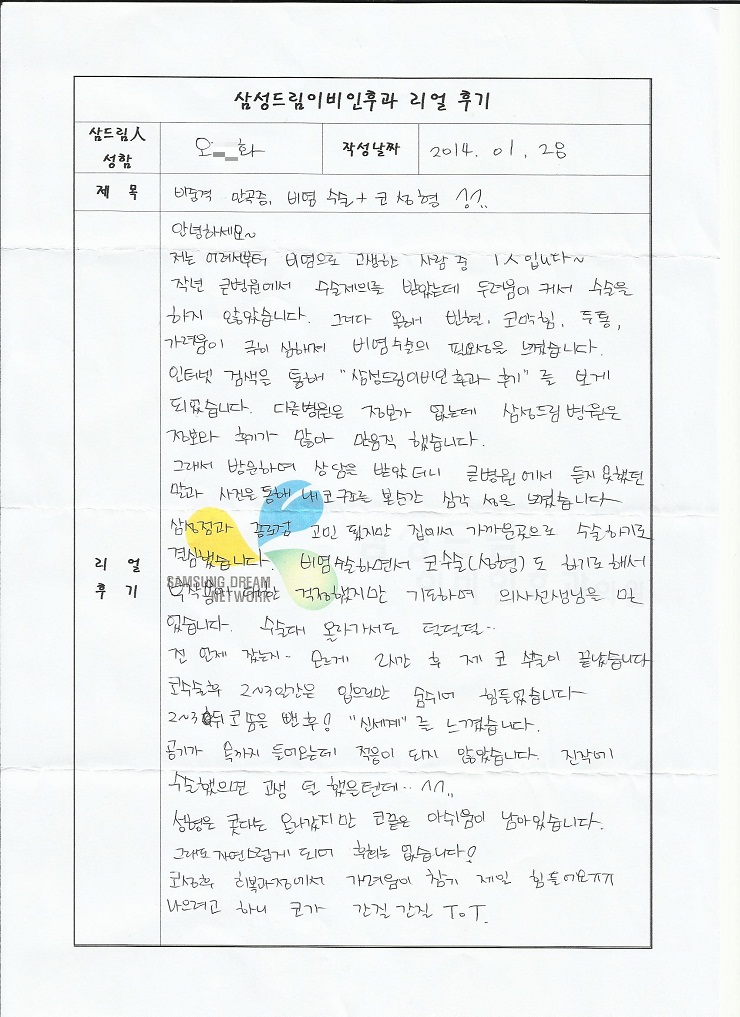 삼성드림이비인후과 리얼 후기
삼드림人 성함
오 화
작성날짜
2014. 01. 28
제 목
비중격 만곡증, 비염 수술 + 코 성형 ^^..
리 얼 후 기
안녕하세요~
저는 어려서부터 비염으로 고생한 사람 중 1人 입니다~
작년 큰병원에서 수술제의를 받았는데 두려움이 커서 수술을
하지 않았습니다. 그러다 올해 빈혈, 코막힘, 두통,
가려움이 극히 심해져 비염수술의 필요성을 느꼈습니다.
인터넷 검색을 통해 "삼성드림이비인후과 후기"를 보게
되었습니다. 다른병원은 정보가 없는데 삼성드림병원은
정보와 후기가 많아 믿음직 했습니다.
그래서 방문하여 상담을 받았더니 큰병원에서 듣지 못했던
말과 사진을 통해 내 코구조를 본순간 심각 성을 느꼈습니다
삼성점과 종로점 고민 됬지만 집에서 가까운곳으로 수술하기로
결심했습니다. 비염수술하면서 코수술(성형)도 하기로해서
걱정했지만 기도하며 의사선생님을 믿
었습니다. 수술대 올라가서도 덜덜덜..
전 언제 잤는지.. 모르게 2시간 후 제 코 수술이 끝났습니다
코수술후 2~3일간은 입으로만 숨쉬어 힘들었습니다
2~3일뒤 코 뜸을 뺀 후! "신세계"를 느꼈습니다.
공기가 속까지 들어오는데 적응이 되지 않았습니다. 진작에
수술했으면 고생 덜 했을텐데.. ^^..
성형은 콧대는 올라갔지만 코끝은 아쉬움이 남아있습니다.
그래도 자연스럽게 되어 후회는 없습니다!
코성형 회복과정에서 가려움이 참기 제일 힘들어요ㅠㅠ
나으려고 하니 코가 간질 간질 ToT.
SAMSUNG DREAM
NETWORK